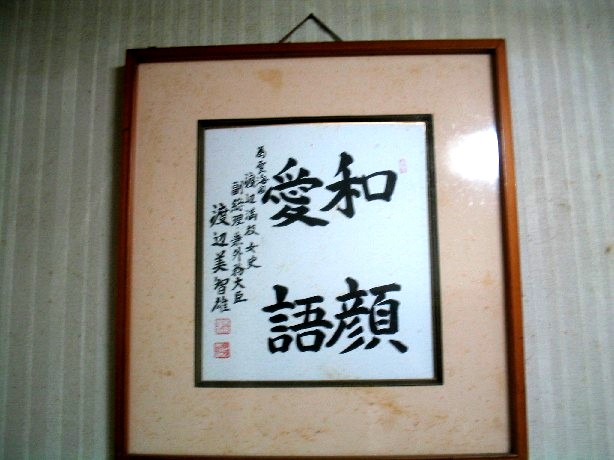 和顔
愛語
渡辺満枝女史
副総理兼外務大臣
渡辺美智雄